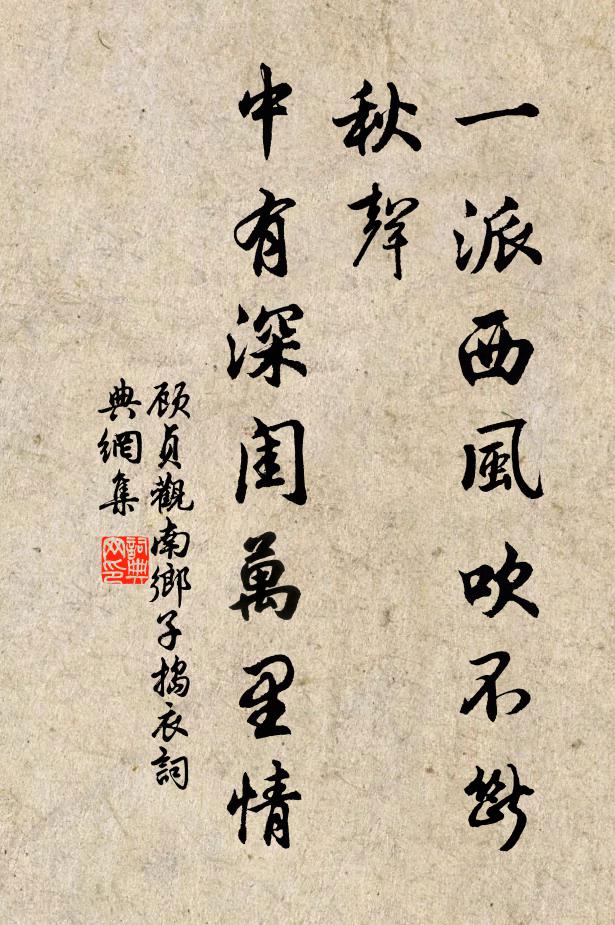 一派西風吹不斷
秋聲
中有深閨萬里情
顧貞觀南鄉子搗衣詞
典網集
詞典網印